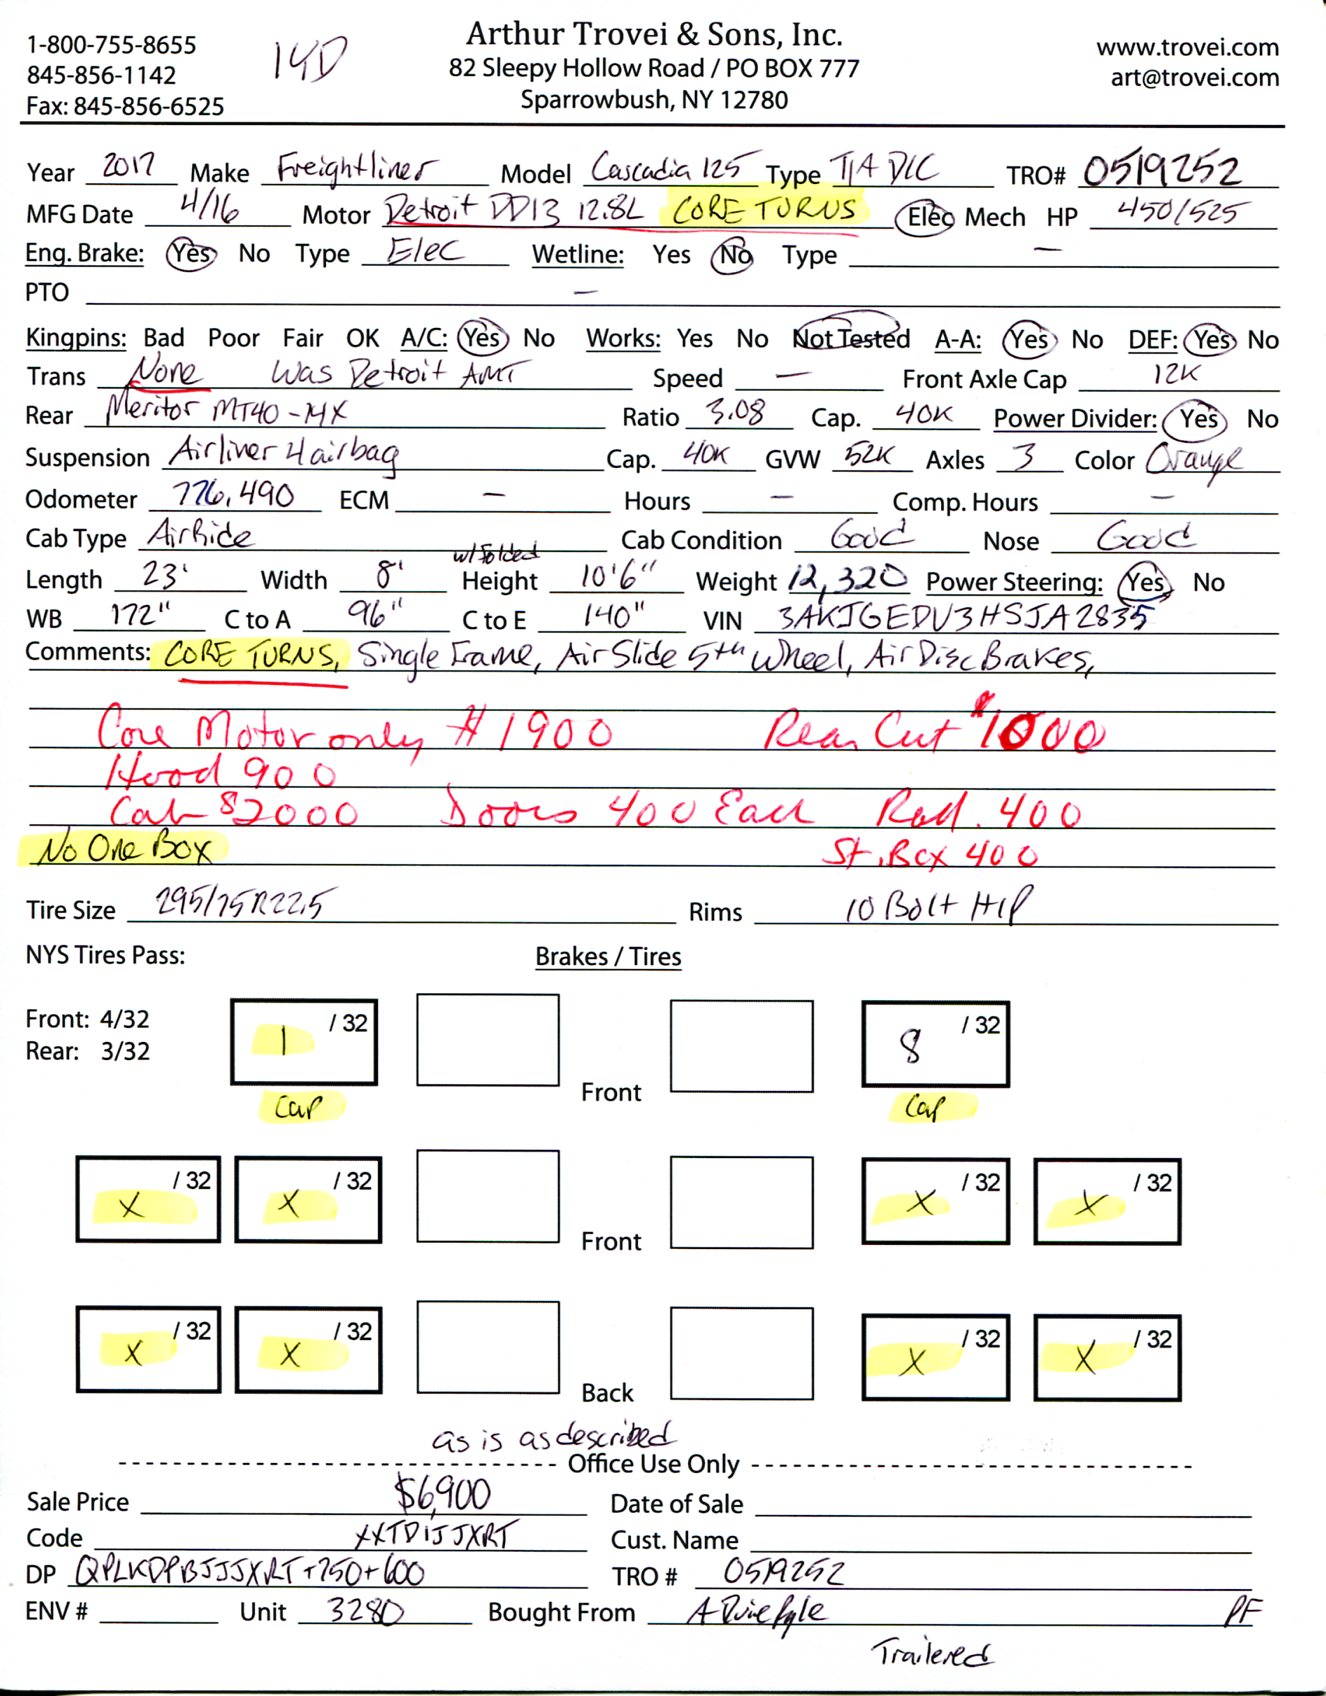 1-800-755-8655
845-856-1142
Fax: 845-856-6525
14D
Arthur Trovei & Sons, Inc.
82 Sleepy Hollow Road / PO BOX 777
Sparrowbush, NY 12780
www.trovei.com
art@trovei.com
Year 2017 Make Freightliner Model Cascadia 125 Type T/A D/C TRO# 0519252
MFG Date 4/16 Motor Detroit DD13 12.8L CORE TURNS Elec Mech HP 450/525
Eng. Brake: Yes No Type Elec Wetline: Yes No Type —
PTO —
Kingpins: Bad Poor Fair OK A/C: Yes No Works: Yes No Not Tested A-A: Yes No DEF: Yes No
Trans None Was Detroit AMT Speed — Front Axle Cap 12K
Rear Meritor MT40-14X Ratio 3.08 Cap. 40K Power Divider: Yes No
Suspension Airliner 4 airbag Cap. 40K GVW 52K Axles 3 Color Orange
Odometer 776,490 ECM — Hours — Comp. Hours —
Cab Type AirRide Cab Condition Good Nose Good
w/Folded
Length 23' Width 8' Height 10'6" Weight 12,320 Power Steering: Yes No
WB 172" C to A 96" C to E 140" VIN 3AKJGEDV3HSJA2835
Comments: CORE TURNS, Single Frame, Air Slide 5th Wheel, Air Disc Brakes,
Core Motor only # 1900 Rear Cut $1000
Hood 900
Cab $2000 Doors 400 Each Rad. 400
No One Box St. Box 400
Tire Size 295/75R22.5 Rims 10 Bolt H/P
NYS Tires Pass: Brakes / Tires
Front: 4/32
Rear: 3/32
1 /32 Front 8 /32
Cap Cap
X /32 X /32 Front X /32 X /32
X /32 X /32 Back X /32 X /32
as is as described
Office Use Only
Sale Price $6,900 Date of Sale
Code XXTDIJJXRT Cust. Name
DP QPLKDPBJJJXRT+750+600 TRO # 0519252
ENV # Unit 3280 Bought From PF
Trailered